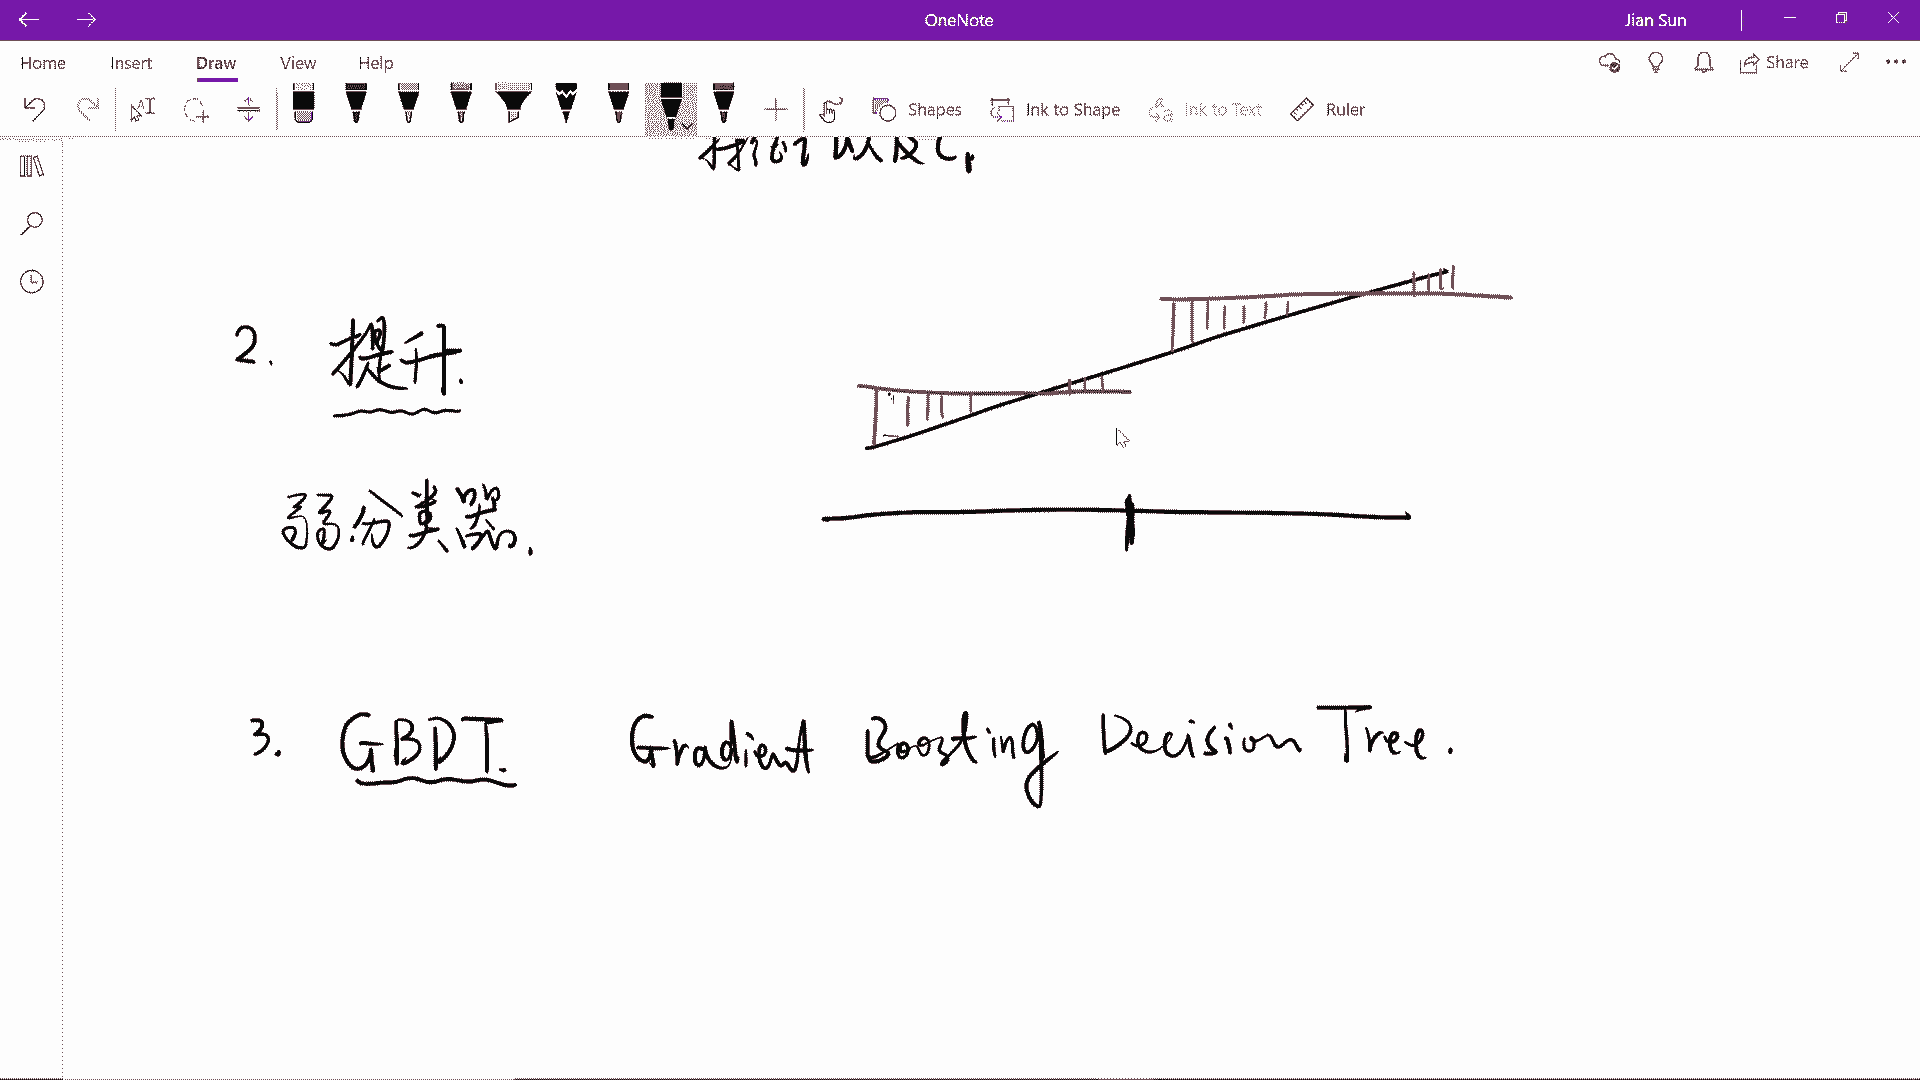 OneNote
Jian Sun
Home Insert Draw View Help
Share
Shapes Ink to Shape Ink to Text Ruler
2. 提升.
弱分类器.
3. GBDT. Gradient Boosting Decision Tree.